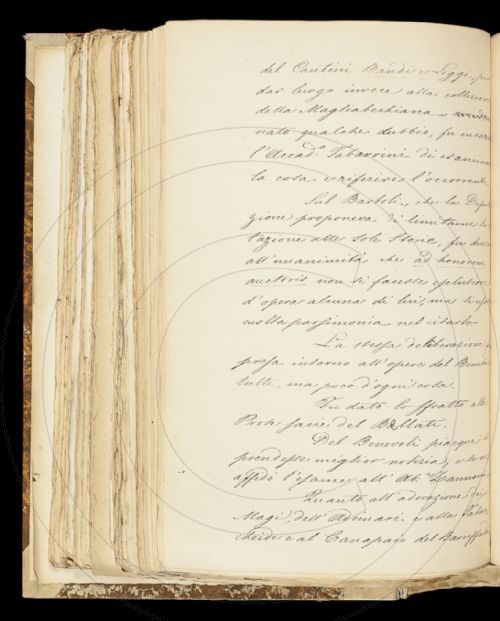 del Cantini Bandi e Leggi, pe
dar luogo invece alla collezion
della Magliabechiana
nato qualche dubbio, fu incar
l'Accad.º Tabarrini di esamina
la cosa e riferire l'occorrente
Sul Bartoli, che la Depu
zione proponeva di limitarne la
tazione alle sole Storie, fu deci
all'unanimità che ad honorem
auctoris non si facesse esclusion
d'opera alcuna di lui, ma si us
molta parsimonia nel citarlo
La stessa deliberazione
presa intorno all'opere del Beniv
, ma poco d'ogni cosa.
Fu dato lo sfratto alle
Poesie sacre del Bellati.
Del Benevoli piacque
prendesse miglior notizia, e ne
affidò l'esame all' Ab. Zannoni
Quanto all'adorazione de
Magi, dell'Adimari e alla
e al Canapajo del Baruffald